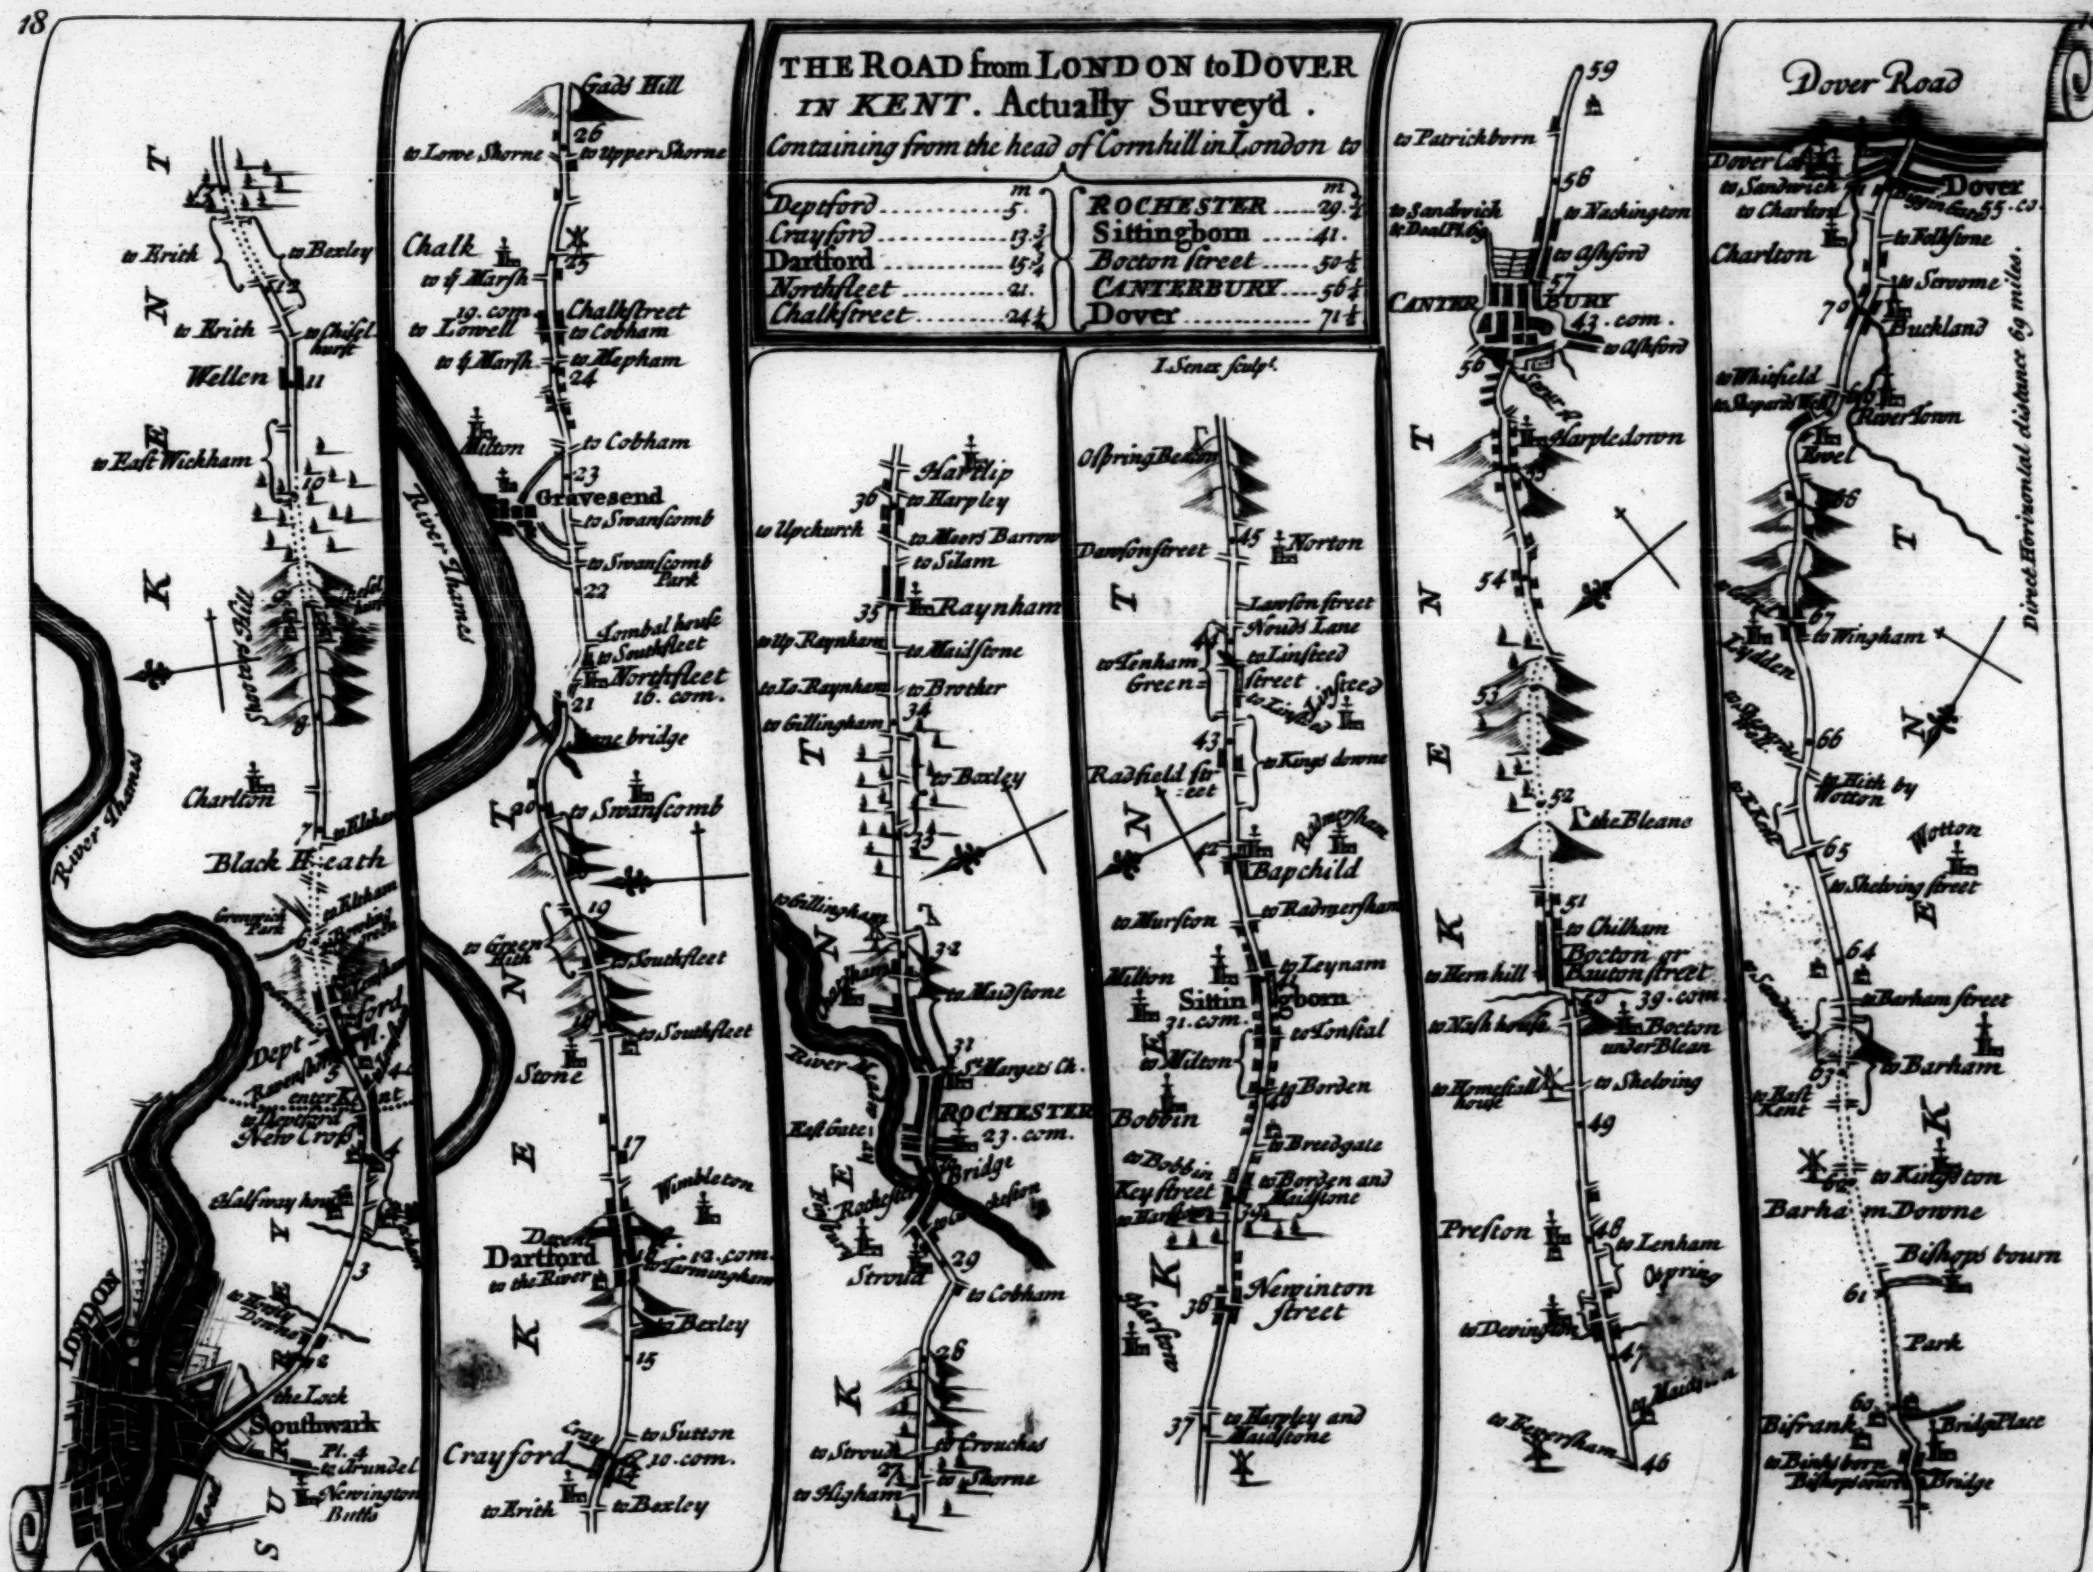 18
THE ROAD from LONDON to DOVER
IN KENT. Actually Survey'd.
Containing from the head of Cornhill in London to
m
Deptford 5.
Crayford 13 3/4
Dartford 15 3/4
Northfleet 21.
Chalkstreet 24 1/4
m
ROCHESTER 29 3/4
Sittingborn 41.
Bocton street 50 1/2
CANTERBURY 56 1/4
Dover 71 1/4
I. Senex sculpt.
KENT
to Erith
to Bexley
12
to Erith
to Chisel
hurst
Wellen
11
to East Wickham
10
Shooters Hill
8
River Thames
Charlton
7
Black Heath
to Eltham
Greenwich
Park
to Eltham
Bowling
green
6
Deptford
5
enter Kent
to Deptford
New Cross
4
Halfway house
3
to Horsly
Downs
2
the Lock
LONDON
Southwark
Pl. 4
to Arundel
Newington
Butts
SURREY
Gads Hill
26
to Lowe Shorne
to Upper Shorne
Chalk
25
to ye Marsh
19. com.
Chalkstreet
to Lowell
to Cobham
to ye Marsh
to Mepham
24
Milton
to Cobham
23
Gravesend
to Swanscomb
to Swanscomb
Park
22
River Thames
Tombal house
to Southfleet
Northfleet
16. com.
21
Stone bridge
20
to Swanscomb
19
to Green
Hith
to Southfleet
18
to Southfleet
Stone
17
Wimbleton
Darent
Dartford
12. com.
to the River
to Farmingham
to Bexley
15
to Sutton
Cray
Crayford
10. com.
14
to Erith
to Bexley
KENT
Hartlip
36
to Harpley
to Upchurch
to Meers Barrow
to Silam
35
Raynham
to Up. Raynham
to Maidstone
to Lo. Raynham
to Brother
34
to Gillingham
to Boxley
33
to Gillingham
32
Chatham
to Maidstone
31
St. Margets Ch.
River Medway
ROCHESTER
23. com.
East Gate
Rochester
Bridge
29
Stroud
to Cobham
28
to Stroud
to Crouches
27
to Shorne
to Higham
KENT
Ospring Beacon
45
Norton
Dawson street
Lawson street
Nouds Lane
44
to Tenham
Green
to Linsteed
street
Linsteed
43
to Kings downe
Radfield str
eet
Radmersham
42
Bapchild
to Murston
to Radmersham
Milton
to Leynam
41
Sittingborn
31. com.
to Tonstal
to Milton
to Borden
40
Bobbin
to Breedgate
to Bobbin
Key street
to Borden and
Maidstone
39
Newinton
street
38
Harstow
37
to Harpley and
Maidstone
KENT
59
to Patrickborn
58
to Sandwich
to Deal Pl. 69
to Nackington
to Ashford
57
CANTERBURY
43. com.
to Ashford
56
Stour R.
Harpledown
55
54
53
52
the Bleane
51
to Chilham
Bocton or
Bauton street
to Hernhill
39. com.
to Nash house
Bocton
under Blean
to Homestall
house
to Shelving
49
Preston
48
to Lenham
Ospring
to Devington
47
to Maidston
to Feversham
46
KENT
Dover Road
Dover Cas
to Sandwich
Dover
55. co.
to Charlton
to Folkstone
Charlton
to Stroome
70
Buckland
to Whitfield
to Shepards Well
69
River Town
Ewel
68
67
to Wingham
Lydden
66
to Hith by
Wotton
65
Wotton
to Shelving street
64
to Sandwich
to Barham street
to Barham
63
to East
Kent
62
to Kingston
Barham Downe
Bishops bourn
61
Park
60
Bifrank
Bridg Place
Bridge
KENT
Direct Horizontal distance 69 miles.